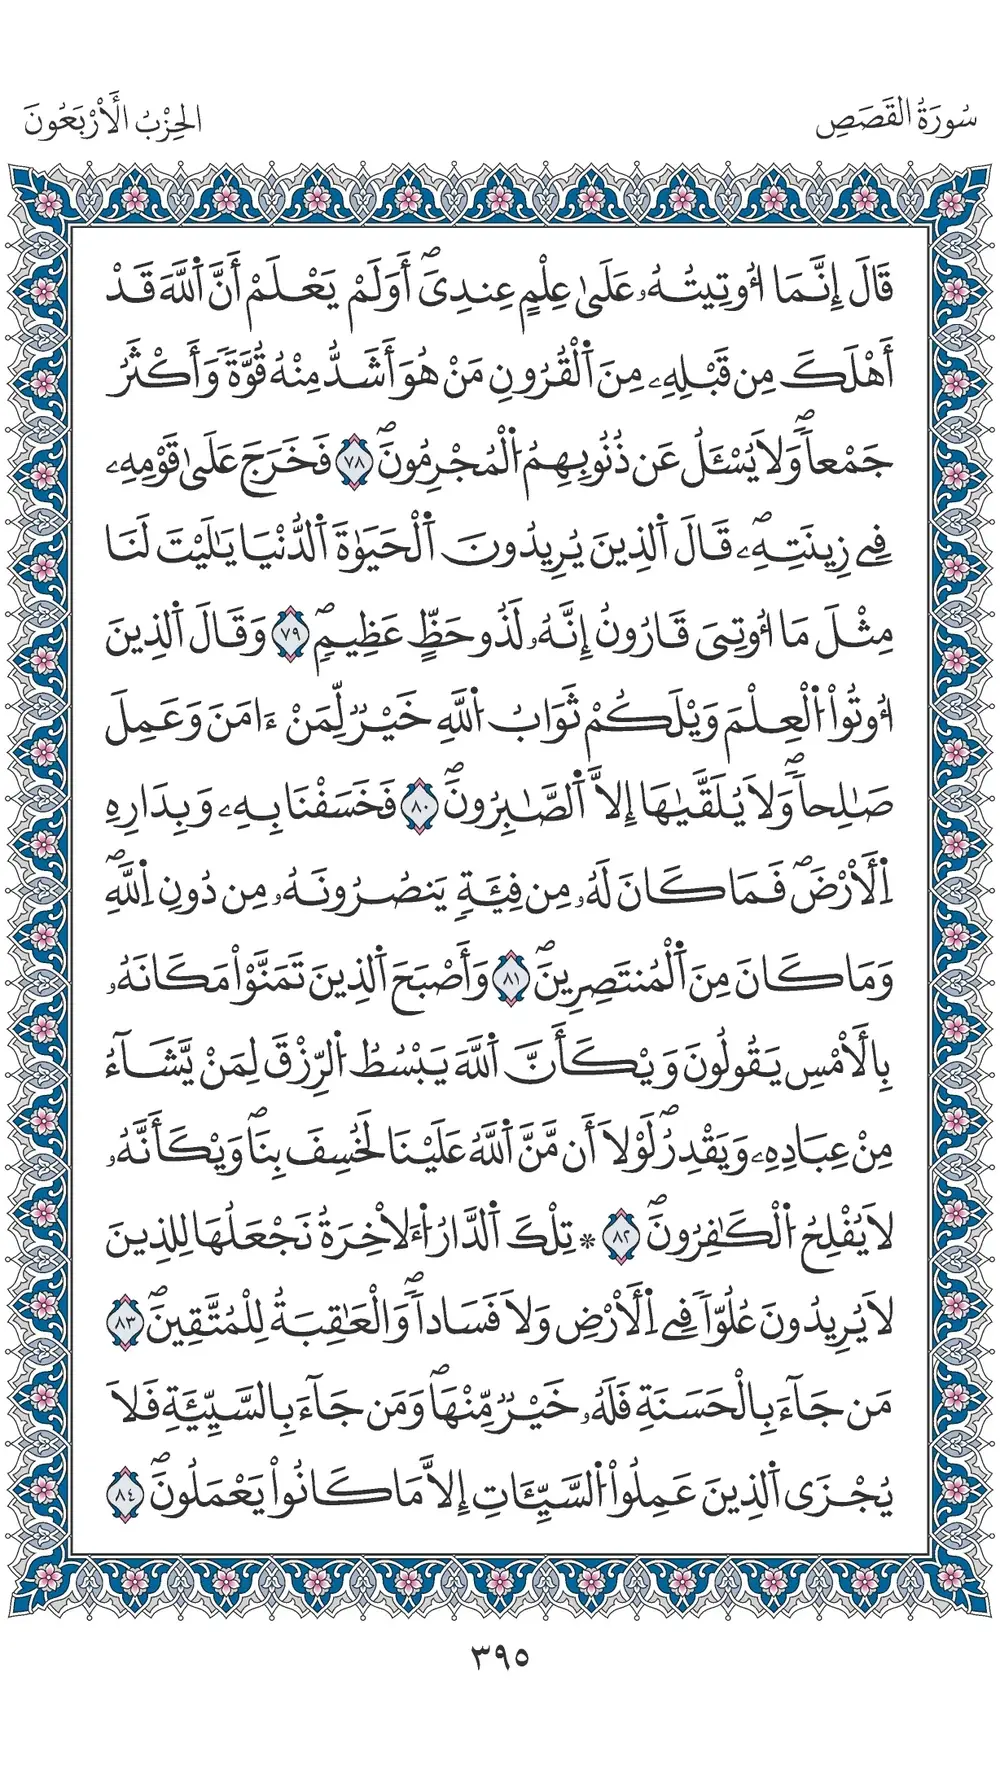 سُورَةُ الْقَصَصِ
الحِزْبُ الْأَرْبَعُونَ
قَالَ إِنَّمَا أُوتِيتُهُۥ عَلَىٰ عِلْمٍ عِندِىۖ أَوَلَمْ يَعْلَمْ أَنَّ اَ۬للَّهَ قَدْ
أَهْلَكَ مِن قَبْلِهِۦ مِنَ اَ۬لْقُرُونِ مَنْ هُوَ أَشَدُّ مِنْهُ قُوَّةٗ وَأَكْثَرُ
جَمْعاٗۖ وَلَا يُسْـَٔلُ عَن ذُنُوبِهِمُ اُ۬لْمُجْرِمُونَۖ ٧٨ فَخَرَجَ عَلَىٰ قَوْمِهِۦ
فِے زِينَتِهِۦۖ قَالَ اَ۬لذِينَ يُرِيدُونَ اَ۬لْحَيَوٰةَ اَ۬لدُّنْيَا يَٰلَيْتَ لَنَا
مِثْلَ مَا أُوتِىَ قَارُونُ إِنَّهُۥ لَذُو حَظٍّ عَظِيمٖۖ ٧٩ وَقَالَ اَ۬لذِينَ
أُوتُواْ اُ۬لْعِلْمَ وَيْلَكُمْ ثَوَابُ اُ۬للَّهِ خَيْرٞ لِّمَنْ ءَامَنَ وَعَمِلَ
صَٰلِحاٗۖ وَلَا يُلَقَّىٰهَا إِلَّا اَ۬لصَّٰبِرُونَۖ ٨٠ فَخَسَفْنَا بِهِۦ وَبِدَارِهِ
اِ۬لْأَرْضَۖ فَمَا كَانَ لَهُۥ مِن فِئَةٖ يَنصُرُونَهُۥ مِن دُونِ اِ۬للَّهِۖ
وَمَا كَانَ مِنَ اَ۬لْمُنتَصِرِينَۖ ٨١ وَأَصْبَحَ اَ۬لذِينَ تَمَنَّوْاْ مَكَانَهُۥ
بِالْأَمْسِ يَقُولُونَ وَيْكَأَنَّ اَ۬للَّهَ يَبْسُطُ اُ۬لرِّزْقَ لِمَنْ يَّشَآءُ
مِنْ عِبَادِهِۦ وَيَقْدِرُۖ لَوْلَا أَن مَّنَّ اَ۬للَّهُ عَلَيْنَا لَخُسِفَ بِنَاۖ وَيْكَأَنَّهُۥ
لَا يُفْلِحُ اُ۬لْكَٰفِرُونَۖ ٨٢ * تِلْكَ اَ۬لدَّارُ اُ۬لْأٓخِرَةُ نَجْعَلُهَا لِلذِينَ
لَا يُرِيدُونَ عُلُوّاٗ فِے اِ۬لْأَرْضِ وَلَا فَسَاداٗۖ وَالْعَٰقِبَةُ لِلْمُتَّقِينَۖ ٨٣
مَن جَآءَ بِالْحَسَنَةِ فَلَهُۥ خَيْرٞ مِّنْهَاۖ وَمَن جَآءَ بِالسَّيِّئَةِ فَلَا
يُجْزَى اَ۬لذِينَ عَمِلُواْ اُ۬لسَّيِّـَٔاتِ إِلَّا مَا كَانُواْ يَعْمَلُونَۖ ٨٤
٣٩٥